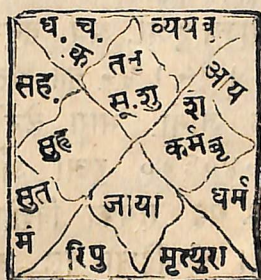 ध. च. व्ययव
क तन
सह. सू. शु आय
श
सुह कर्मबृ
सुत जाया धर्म
मं रिपु मृत्युरा